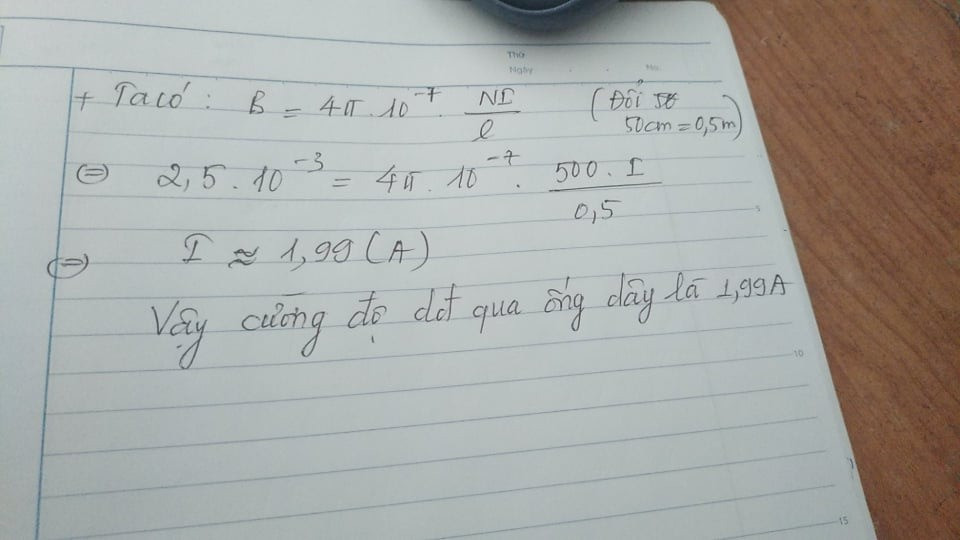 Thứ
Ngày . . No.
+ Ta có : B = 4π . 10⁻⁷ . NI / l (Đổi 50cm = 0,5m)
⇔ 2,5 . 10⁻³ = 4π . 10⁻⁷ . 500 . I / 0,5
⇔ I ≈ 1,99 (A)
Vậy cường độ dđ qua ống dây là 1,99A
5
10
15